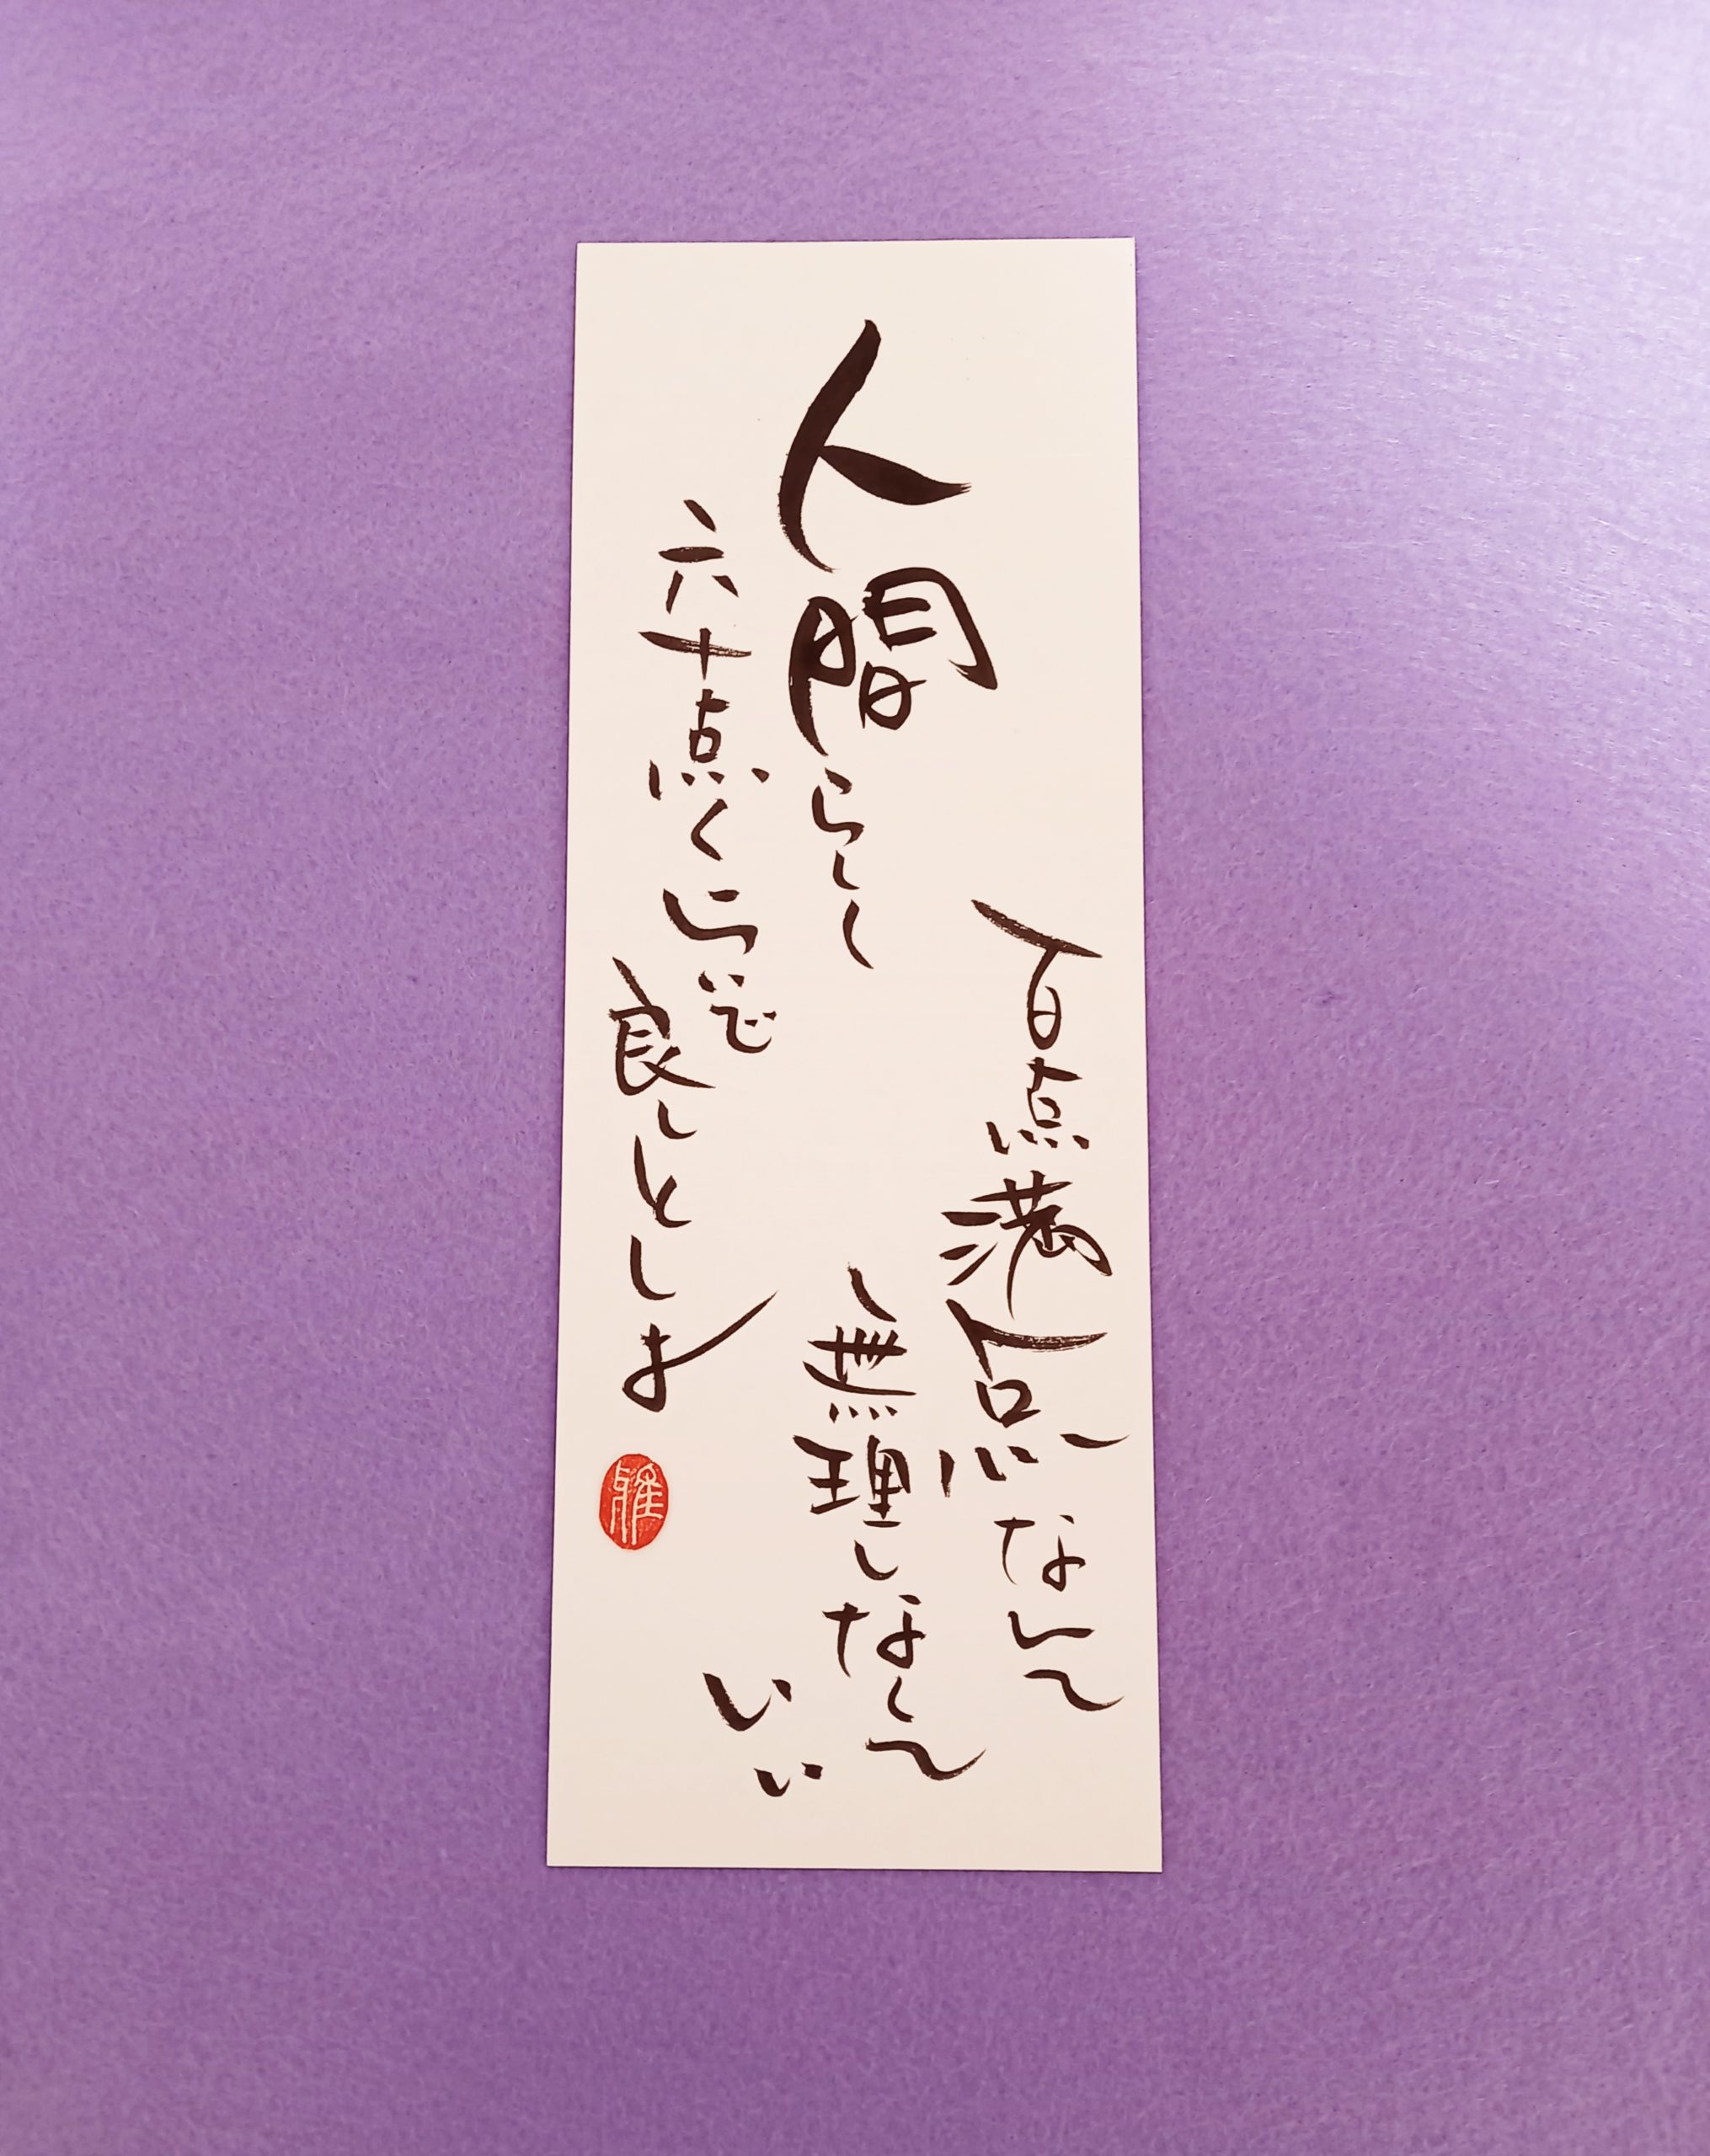 百点満点なんて
無理しなくて
いい
人間らしく
六十点くらいで
良しとしよ
雅